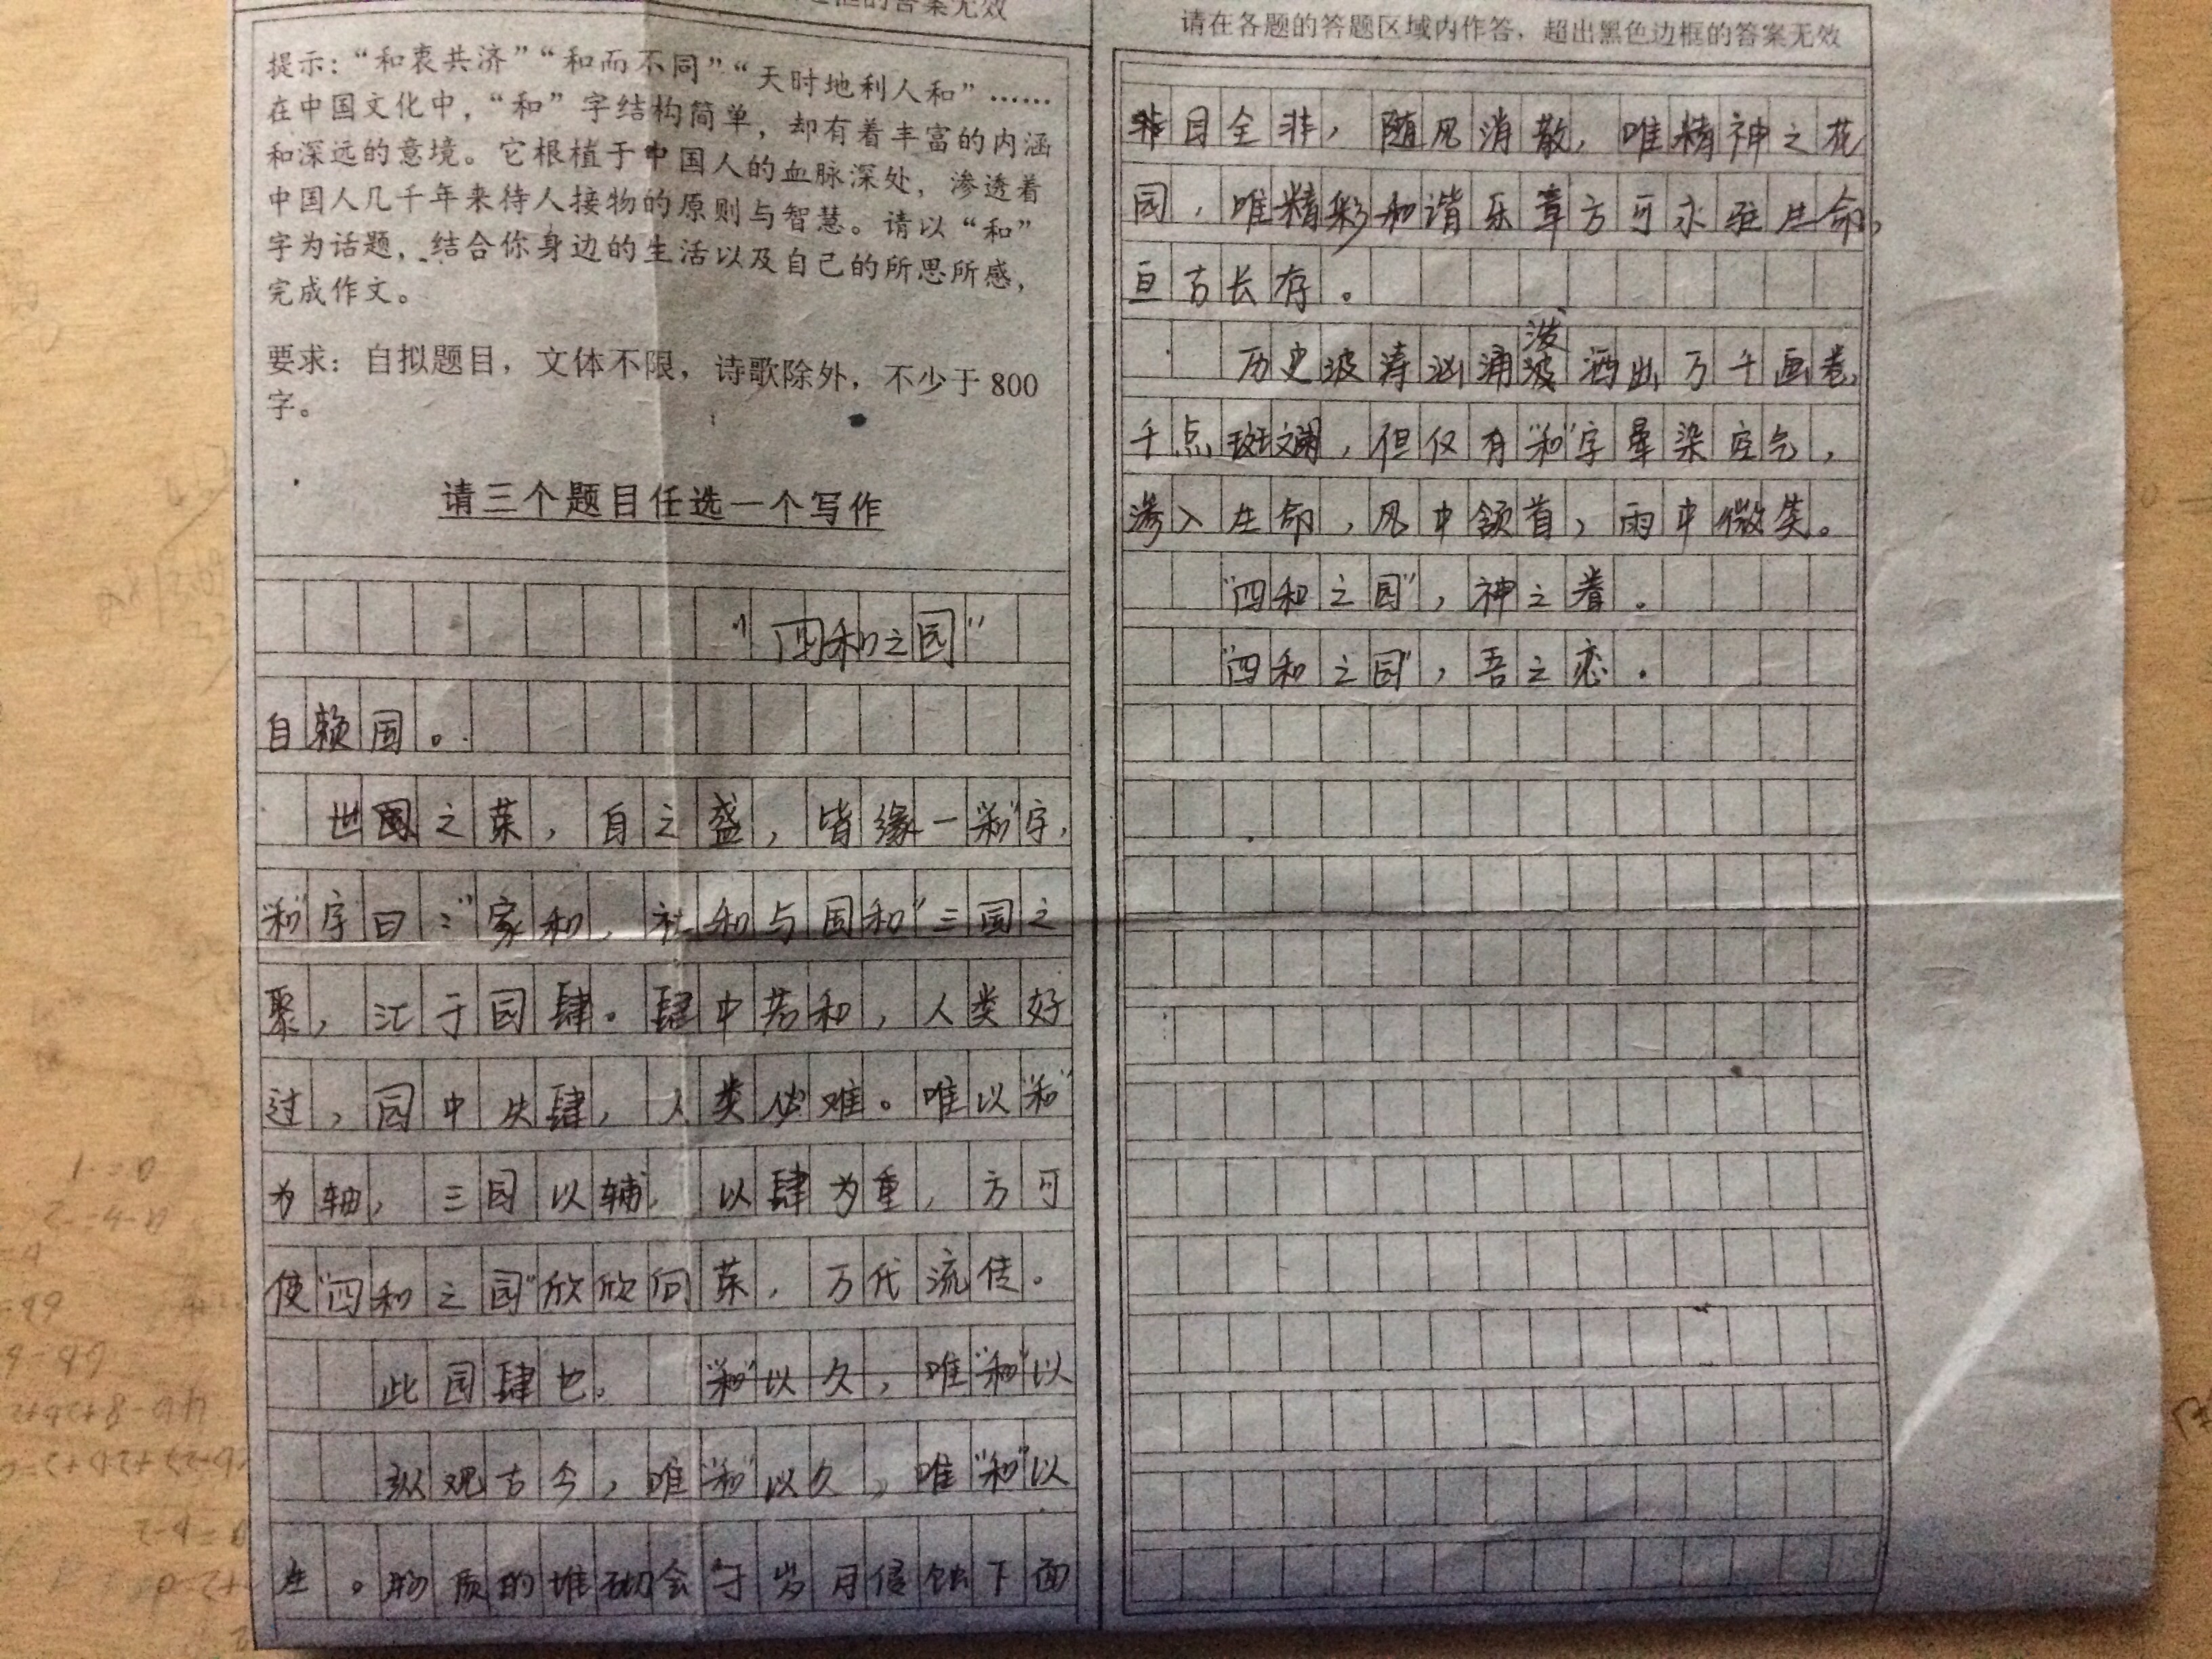 框的答案无效
提示：“和衷共济”“和而不同”“天时地利人和”……
在中国文化中，“和”字结构简单，却有着丰富的内涵
和深远的意境。它根植于中国人的血脉深处，渗透着
中国人几千年来待人接物的原则与智慧。请以“和”
字为话题，结合你身边的生活以及自己的所思所感，
完成作文。
要求：自拟题目，文体不限，诗歌除外，不少于800
字。
请三个题目任选一个写作
“四和之园”
自赖园。
世园之荣，自之盛，皆缘一“和”字，
“和”字曰：“家和，社和与国和”三园之
聚，汇于园肆。肆中若和，人类好
过，园中失肆，人类必难。唯以“和”
为轴，三园以辅，以肆为重，方可
使“四和之园”欣欣向荣，万代流传。
此园肆也，“和”以久，唯“和”以
纵观古今，唯“和”以久，唯“和”以
生。物质的堆砌会于岁月侵蚀下面
请在各题的答题区域内作答，超出黑色边框的答案无效
非目全非，随风消散，唯精神之花
园，唯精彩和谐乐章方可永驻生命，
亘古长存。
历史波涛汹涌泼洒出万千画卷，
千点斑斓，但仅有“和”字晕染空气，
渗入生命，风中颔首，雨中微笑。
“四和之园”，神之眷。
“四和之园”，吾之恋。